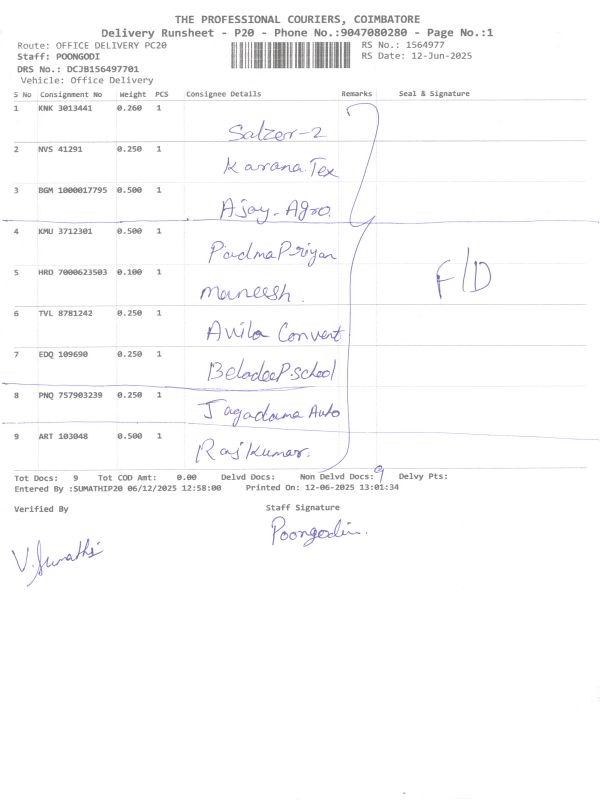 THE PROFESSIONAL COURIERS, COIMBATORE
Delivery Runsheet - P20 - Phone No.:9047080280 - Page No.:1
Route: OFFICE DELIVERY PC20 RS No.: 1564977
Staff: POONGODI RS Date: 12-Jun-2025
DRS No.: DCJB156497701
Vehicle: Office Delivery
S No Consignment No Weight PCS Consignee Details Remarks Seal & Signature
1 KNK 3013441 0.260 1
Salzer-2
2 NVS 41291 0.250 1
Karana.Tex
3 BGM 1000017795 0.500 1
Ajay-Agro.
4 KMU 3712301 0.500 1
PadmaPriyan
F/D
5 HRD 7000623503 0.100 1
Maneesh.
6 TVL 8781242 0.250 1
Avila Convent
7 EDQ 109690 0.250 1
P.school
8 PNQ 757903239 0.250 1
Auto
9 ART 103048 0.500 1
RajKumar.
Tot Docs: 9 Tot COD Amt: 0.00 Delvd Docs: Non Delvd Docs: 9 Delvy Pts:
Entered By :SUMATHIP20 06/12/2025 12:58:00 Printed On: 12-06-2025 13:01:34
Verified By Staff Signature
V.Sumathi